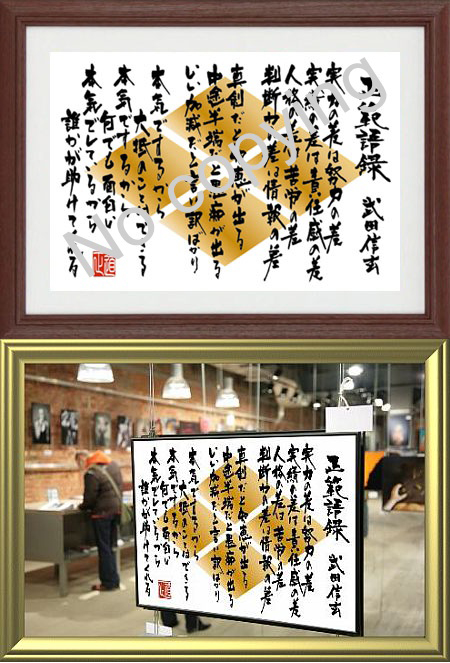 正範語録 武田信玄
実力の差は努力の差
実績の差は責任感の差
人格の差は苦労の差
判断力の差は情報の差
真剣だと知恵が出る
中途半端だと愚痴が出る
いい加減だと言い訳ばかり
本気でするから
大抵のことはできる
本気でするから
何でも面白い
本気でしているから
誰かが助けてくれる
No copying
正範語録 武田信玄
実力の差は努力の差
実績の差は責任感の差
人格の差は苦労の差
判断力の差は情報の差
真剣だと知恵が出る
中途半端だと愚痴が出る
いい加減だと言い訳ばかり
本気でするから
大抵のことはできる
本気でするから
何でも面白い
本気でしているから
誰かが助けてくれる